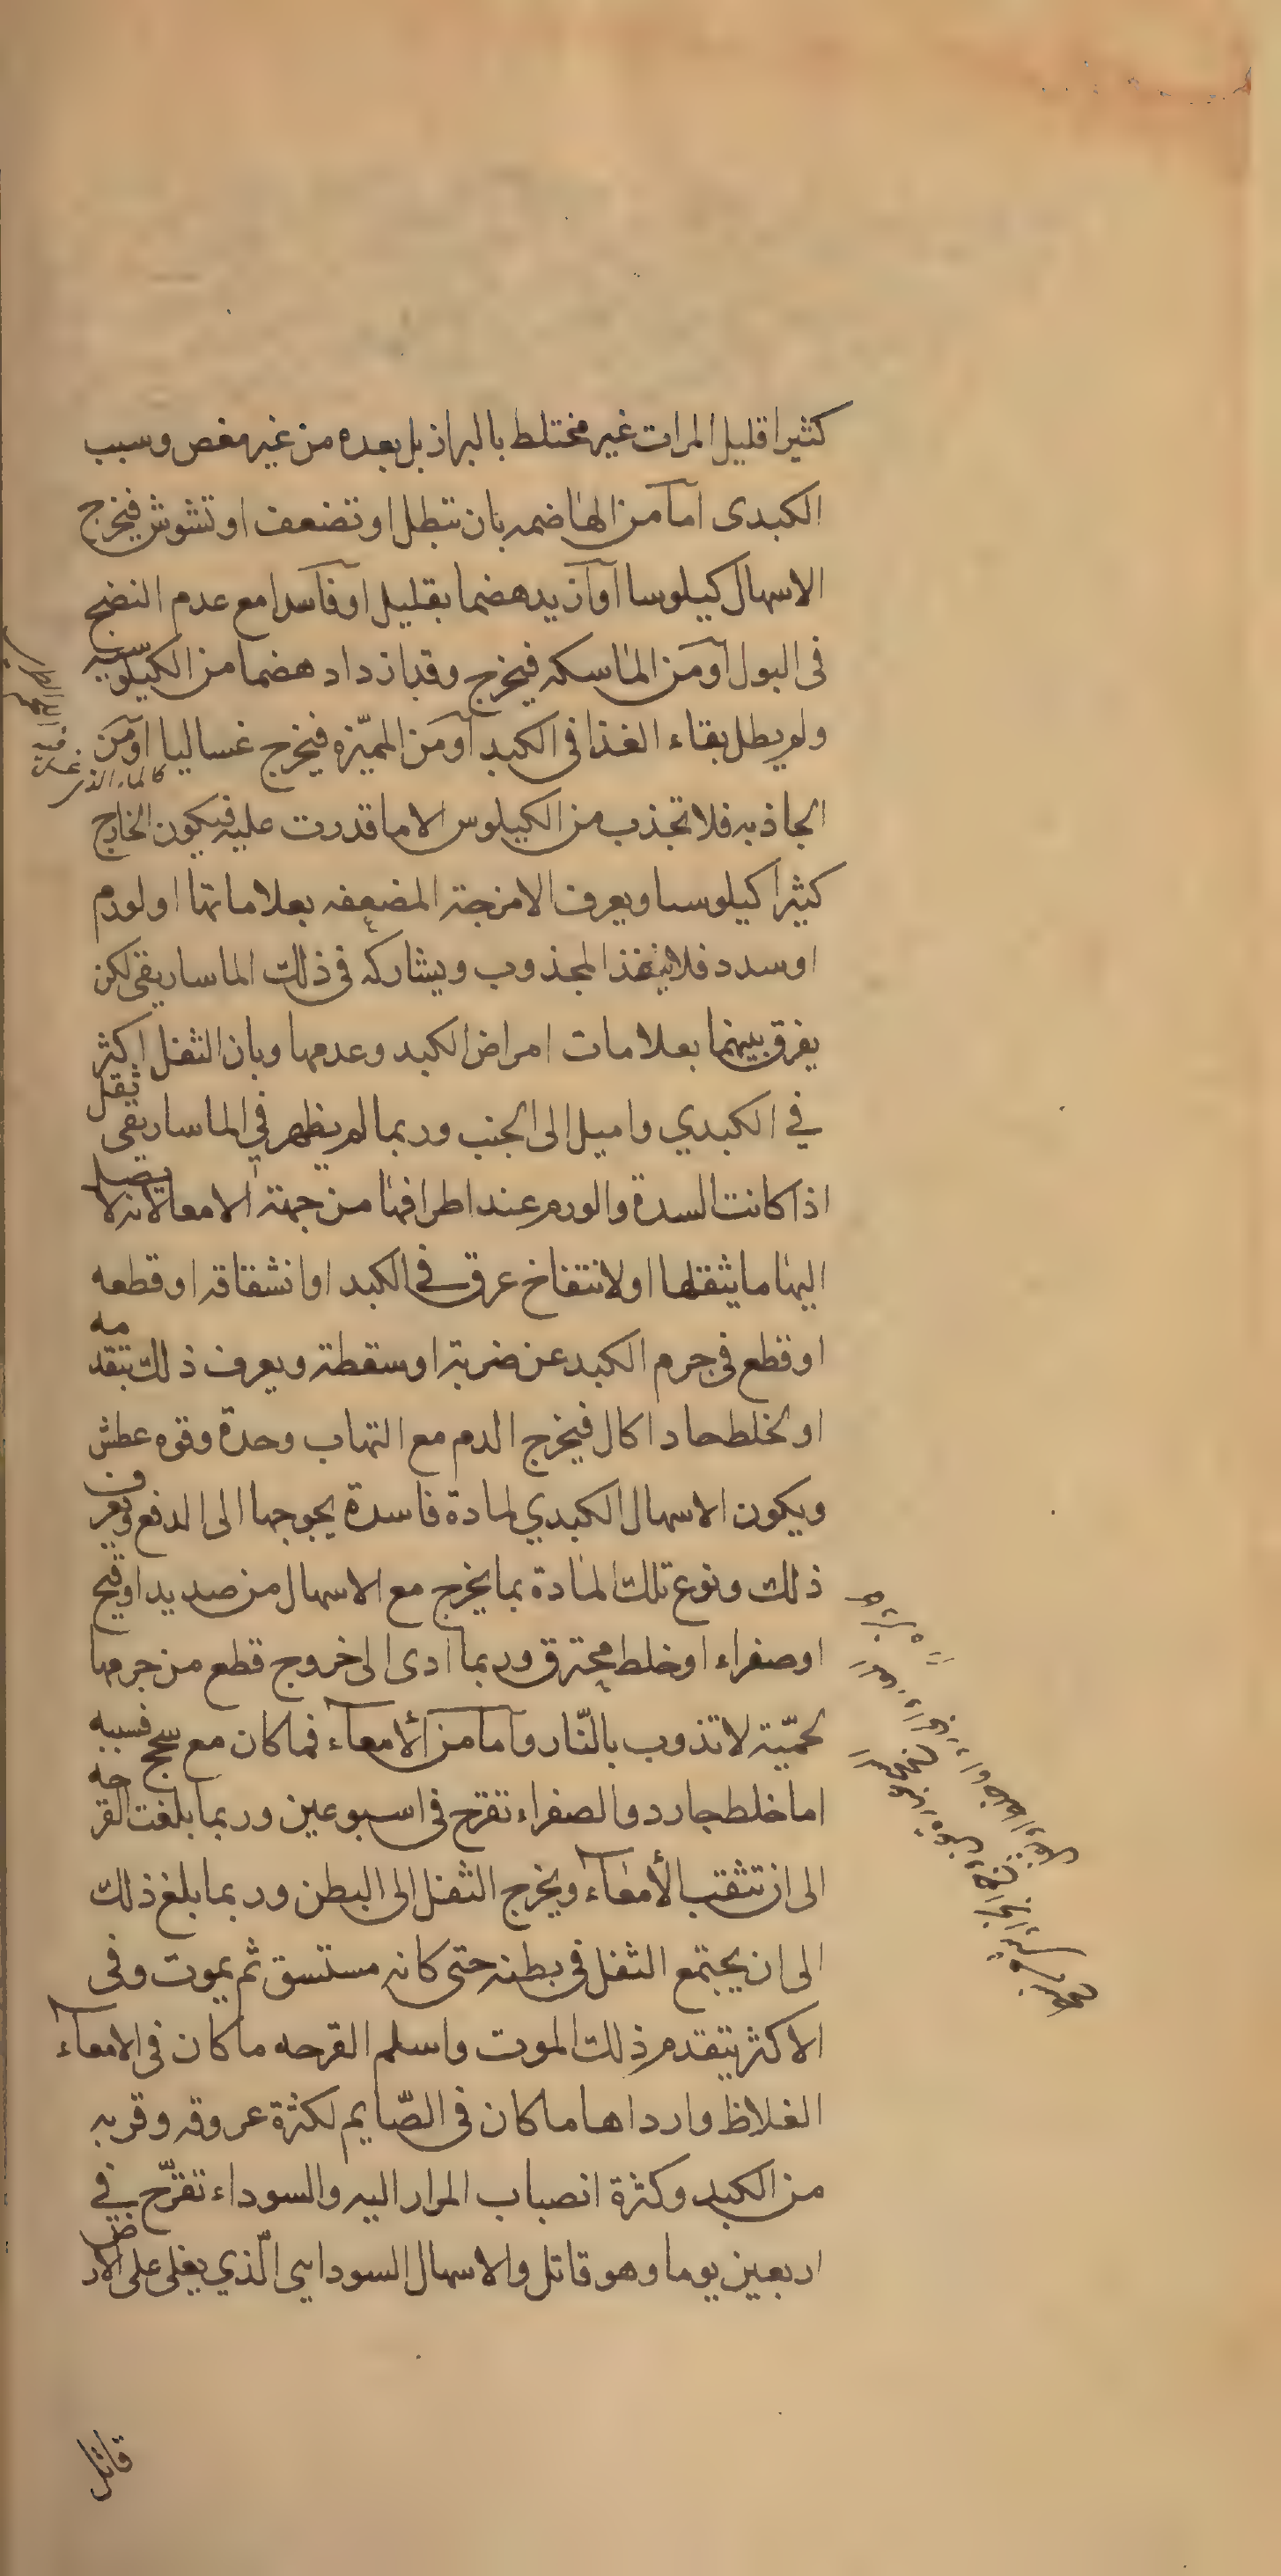 كثيرا قليل المرات غير مختلط بالبراز بل بعده من غير مغص وسبب
الكبدى اما من الهاضمه بان تبطل او تضعف او تشوش فيخرج
الاسهال كيلوسا او ازيد هضما بقليل او فاسدا مع عدم النضج
فى البول او من الماسكه فيخرج وقد ازداد هضما من الكيلوسيه
ولم يطل بقاء الغذا فى الكبد او من المميّزة فيخرج غساليا او من
الجاذبه فلا تجذب من الكيلوس الا ما قدرت عليه فيكون الخارج
كثيرا كيلوسا ويعرف الامزجة المضعفه بعلاماتها او لورم
او سدد فلا ينفذ المجذوب ويشاركه فى ذلك الماساريقى لكن
يفرق بينهما بعلامات امراض الكبد وعدمها وبان الثقل اكثر
في الكبدي واميل الى الجنب وربما لم يظهر في الماساريقى ثقل
اذا كانت السدة والورم عند اطرافها من جهة الامعا لانه لا يصل
اليها ما يثقلها او لانتفاخ عرق في الكبد او انشقاقه او قطعه
او قطع فى جرم الكبد عن ضربة او سقطة ويعرف ذلك بتقدمه
او لخلط حاد اكال فيخرج الدم مع التهاب وحدة وقوه عطش
ويكون الاسهال الكبدي لمادة فاسدة يحوجها الى الدفع ويعرف
ذلك ونوع تلك المادة بما يخرج مع الاسهال من صديد او قيح
او صفراء او خلط محترق وربما ادى الى خروج قطع من جرمها
لحميّة لا تذوب بالنّار واما من الأمعآء فما كان مع سحج فسببه
اما خلط حار د والصفراء تقرح فى اسبوعين وربما بلغت القرحه
الى ان تثقب الأمعآء ويخرج الثفل الى البطن وربما بلغ ذلك
الى ان يجتمع الثفل فى بطنه حتى كانه مستسق ثم يموت وفى
الاكثر يتقدم ذلك الموت واسلم القرحه ما كان فى الامعآء
الغلاظ وارداها ما كان فى الصّايم لكثرة عروقه وقربه
من الكبد وكثرة انصباب المرار اليه والسوداء تقرّح في
اربعين يوما وهو قاتل والاسهال السودايى الّذي يغلى على الارض
قاتل
كالماء الذى